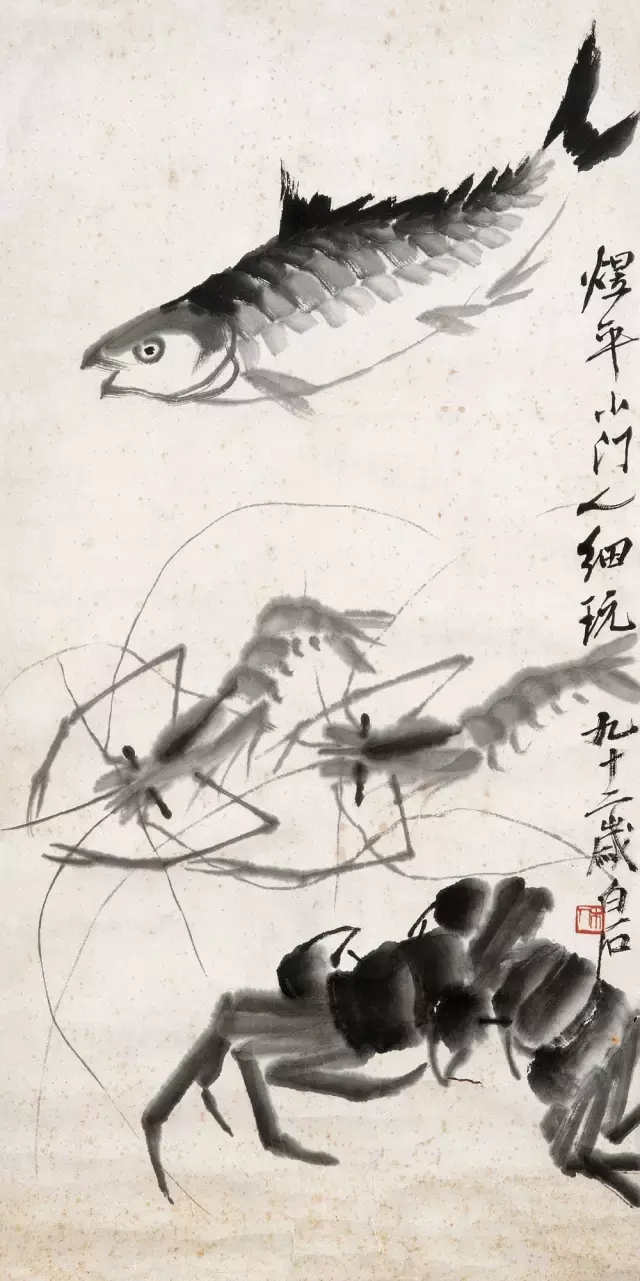 煜平小门人细玩
九十二岁白石